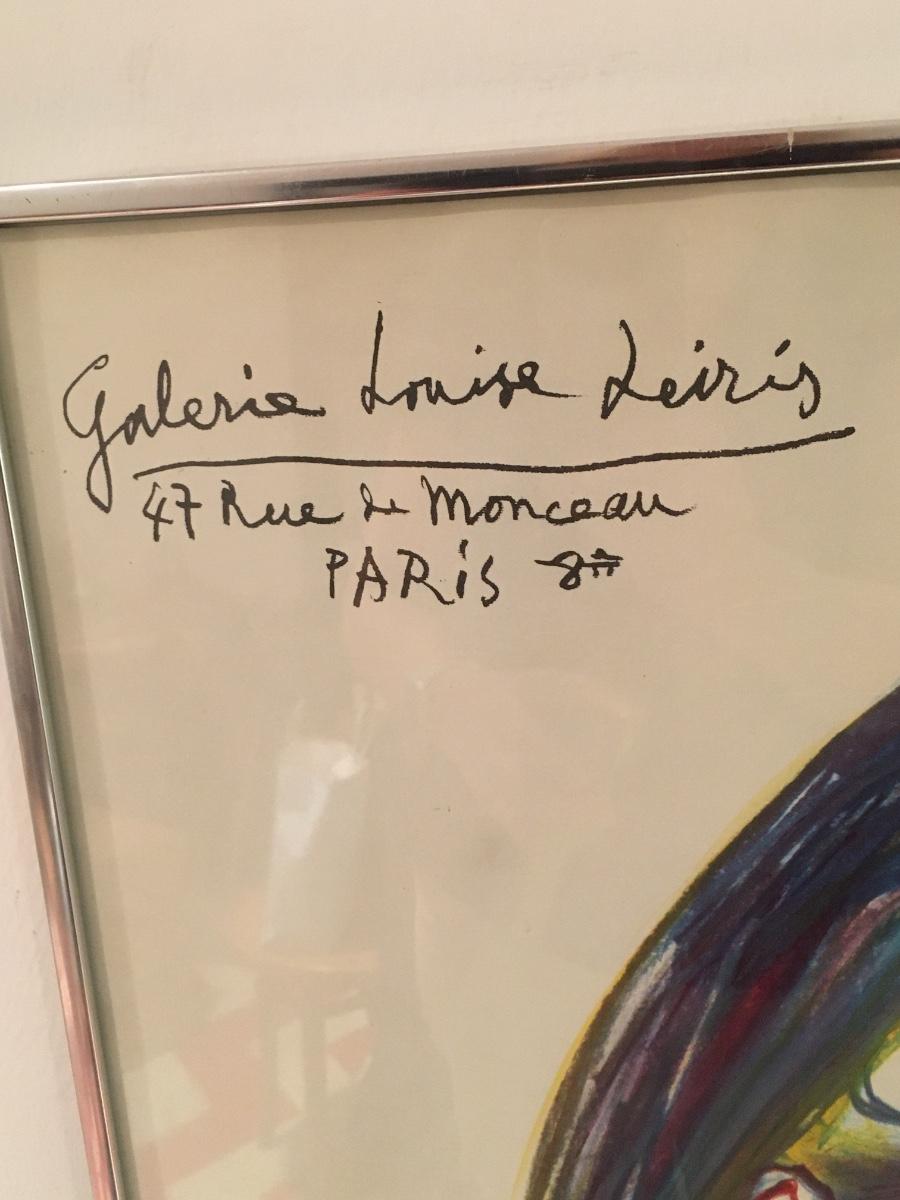 Galerie Louise Leiris
47 Rue de Monceau
PARiS 8è